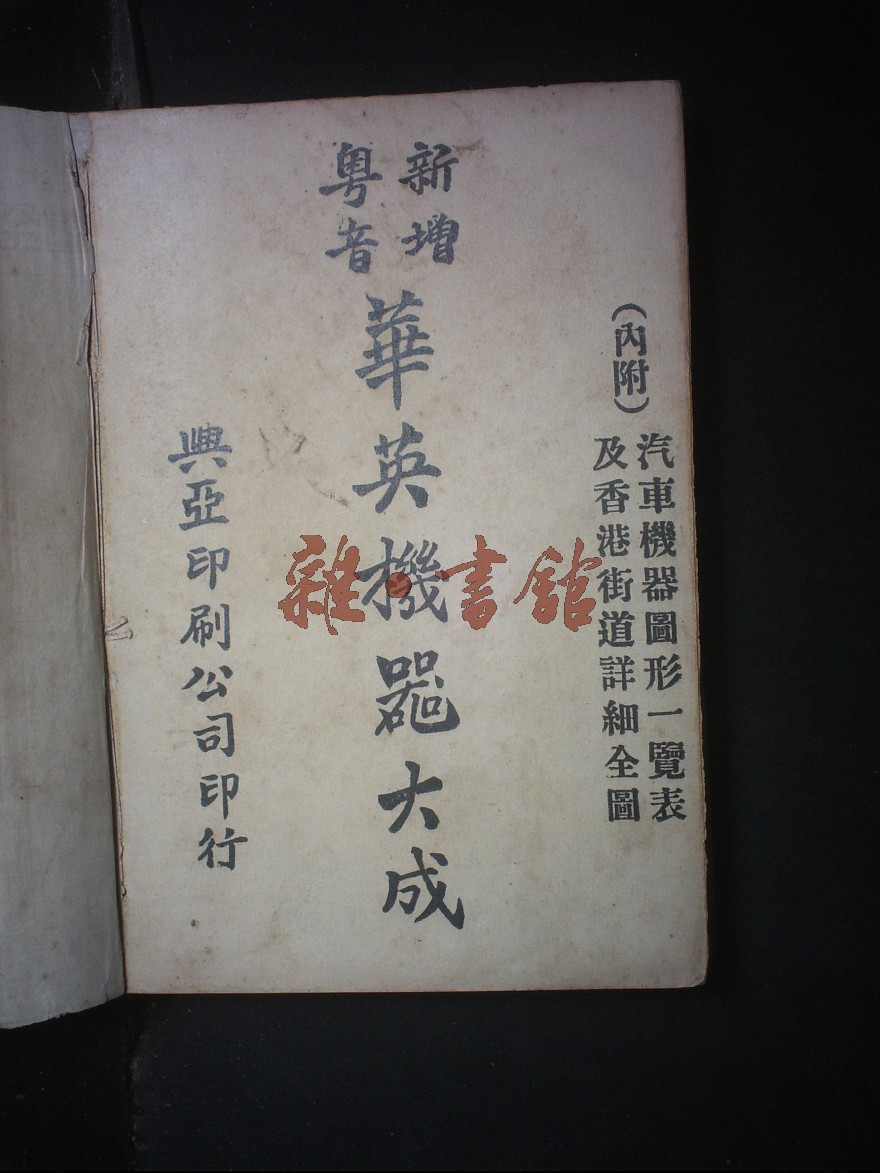 （內附）
汽車機器圖形一覽表
及香港街道詳細全圖
新增
粵音
華英機器大成
興亞印刷公司印行
雜書館